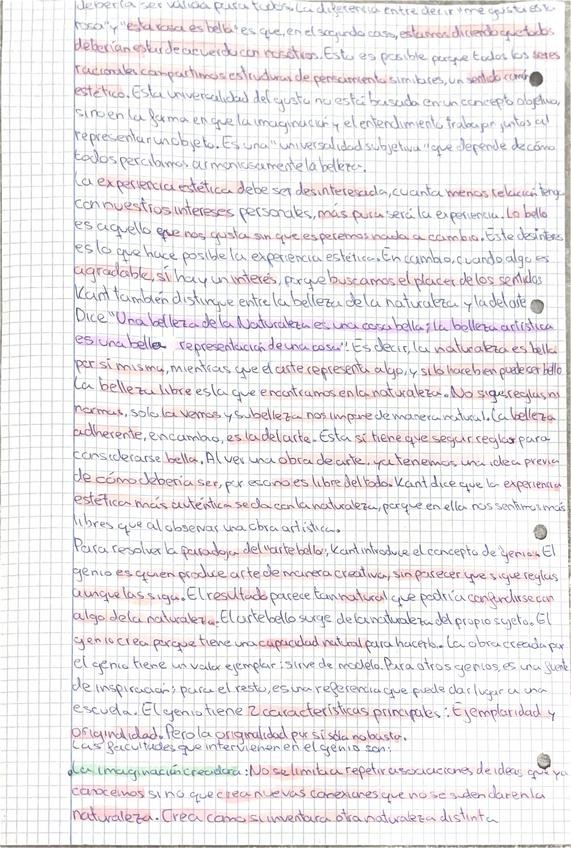 debería ser válida para todos. La diferencia entre decir "me gusta esta
rosa" y "esta rosa es bella" es que, en el segundo caso, estamos diciendo que todos
deberían estar de acuerdo con nosotros. Esto es posible porque todos los seres
racionales compartimos estructuras de pensamiento similares, un sentido común
estético. Esta universalidad del gusto no está basada en un concepto objetivo,
sino en la forma en que la imaginación y el entendimiento trabajan juntos al
representar un objeto. Es una "universalidad subjetiva" que depende de cómo
todos percibamos armoniosamente la belleza.
La experiencia estética debe ser desinteresada, cuanta menos relación tenga
con nuestros intereses personales, más pura será la experiencia. Lo bello
es aquello que nos gusta sin que esperemos nada a cambio. Este desinterés
es lo que hace posible la experiencia estética. En cambio, cuando algo es
agradable, sí hay un interés, porque buscamos el placer de los sentidos
Kant también distingue entre la belleza de la naturaleza y la del arte
Dice "Una belleza de la Naturaleza es una cosa bella; la belleza artística
es una bella representación de una cosa". Es decir, la naturaleza es bella
por sí misma, mientras que el arte representa algo, y si lo hace bien puede ser bello
La belleza libre es la que encontramos en la naturaleza. No sigue reglas ni
normas, solo la vemos y su belleza nos impone de manera natural. La belleza
adherente, en cambio, es la del arte. Esta sí tiene que seguir reglas para
considerarse bella. Al ver una obra de arte, ya tenemos una idea previa
de cómo debería ser, por eso no es libre del todo. Kant dice que la experiencia
estética más auténtica se da con la naturaleza, porque en ella nos sentimos más
libres que al observar una obra artística.
Para resolver la paradoja del "arte bello", Kant introduce el concepto de genio. El
genio es quien produce arte de manera creativa, sin parecer que sigue reglas
aunque las siga. El resultado parece tan natural que podría confundirse con
algo de la naturaleza. El arte bello surge de la naturaleza del propio sujeto. El
genio crea porque tiene una capacidad natural para hacerlo. La obra creada por
el genio tiene un valor ejemplar: sirve de modelo. Para otros genios, es una fuente
de inspiración; para el resto, es una referencia que puede dar lugar a una
escuela. El genio tiene 2 características principales: Ejemplaridad y
originalidad. Pero la originalidad por sí sola no basta.
Las facultades que intervienen en el genio son:
La imaginación creadora: No se limita a repetir asociaciones de ideas que ya
conocemos sino que crea nuevas conexiones que no se suelen dar en la
naturaleza. Crea como si inventara otra naturaleza distinta